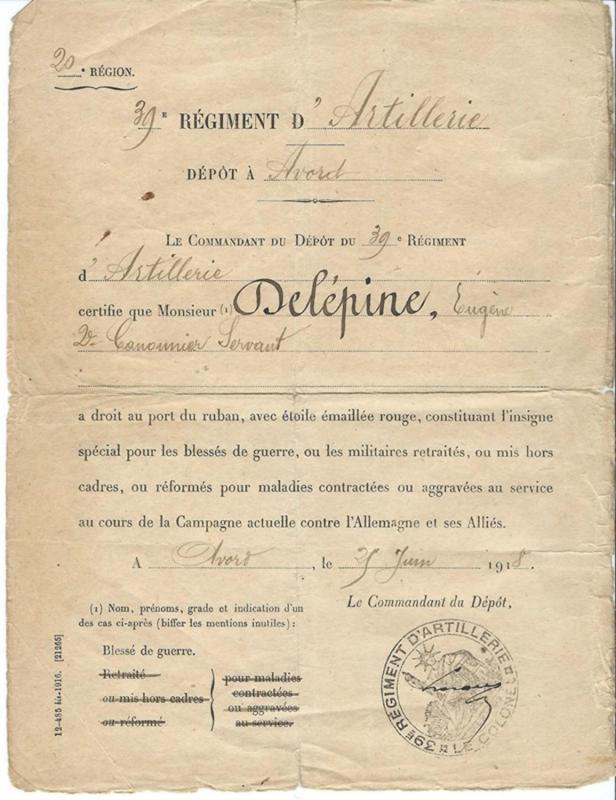 20e RÉGION.
39E RÉGIMENT D'Artillerie
DÉPÔT À Avord
LE COMMANDANT DU DÉPÔT DU 39e RÉGIMENT
d'Artillerie
certifie que Monsieur (1) Delépine, Eugène
2e Canonnier Servant
a droit au port du ruban, avec étoile émaillée rouge, constituant l'insigne
spécial pour les blessés de guerre, ou les militaires retraités, ou mis hors
cadres, ou réformés pour maladies contractées ou aggravées au service
au cours de la Campagne actuelle contre l'Allemagne et ses Alliés.
A Avord, le 25 Juin 1918.
Le Commandant du Dépôt,
(1) Nom, prénoms, grade et indication d'un
des cas ci-après (biffer les mentions inutiles) :
Blessé de guerre.
Retraité
ou mis hors cadres
ou réformé
pour maladies
contractées
ou aggravées
au service.
39E RÉGIMENT D'ARTILLERIE
LE COLONEL
12-485 bis-1916. [21265]